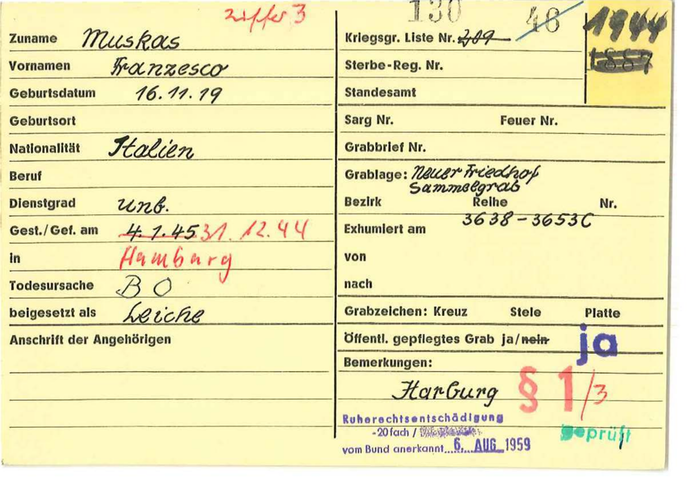 ziffer 3
Zuname Muskas
Vornamen Franzesco
Geburtsdatum 16.11.19
Geburtsort
Nationalität Italien
Beruf
Dienstgrad unb.
Gest./Gef. am 4.1.45 31.12.44
in Hamburg
Todesursache B O
beigesetzt als Leiche
Anschrift der Angehörigen
130 48 1944
Kriegsgr. Liste Nr. 209 1887
Sterbe-Reg. Nr.
Standesamt
Sarg Nr. Feuer Nr.
Grabbrief Nr.
Grablage: Neuer Friedhof
Sammelgrab
Bezirk Reihe Nr.
3638-3653C
Exhumiert am
von
nach
Grabzeichen: Kreuz Stele Platte
Öffentl. gepflegtes Grab ja/nein ja
Bemerkungen:
Harburg § 1/3
Ruherechtsentschädigung
-20fach /
vom Bund anerkannt 6. AUG. 1959
geprüft